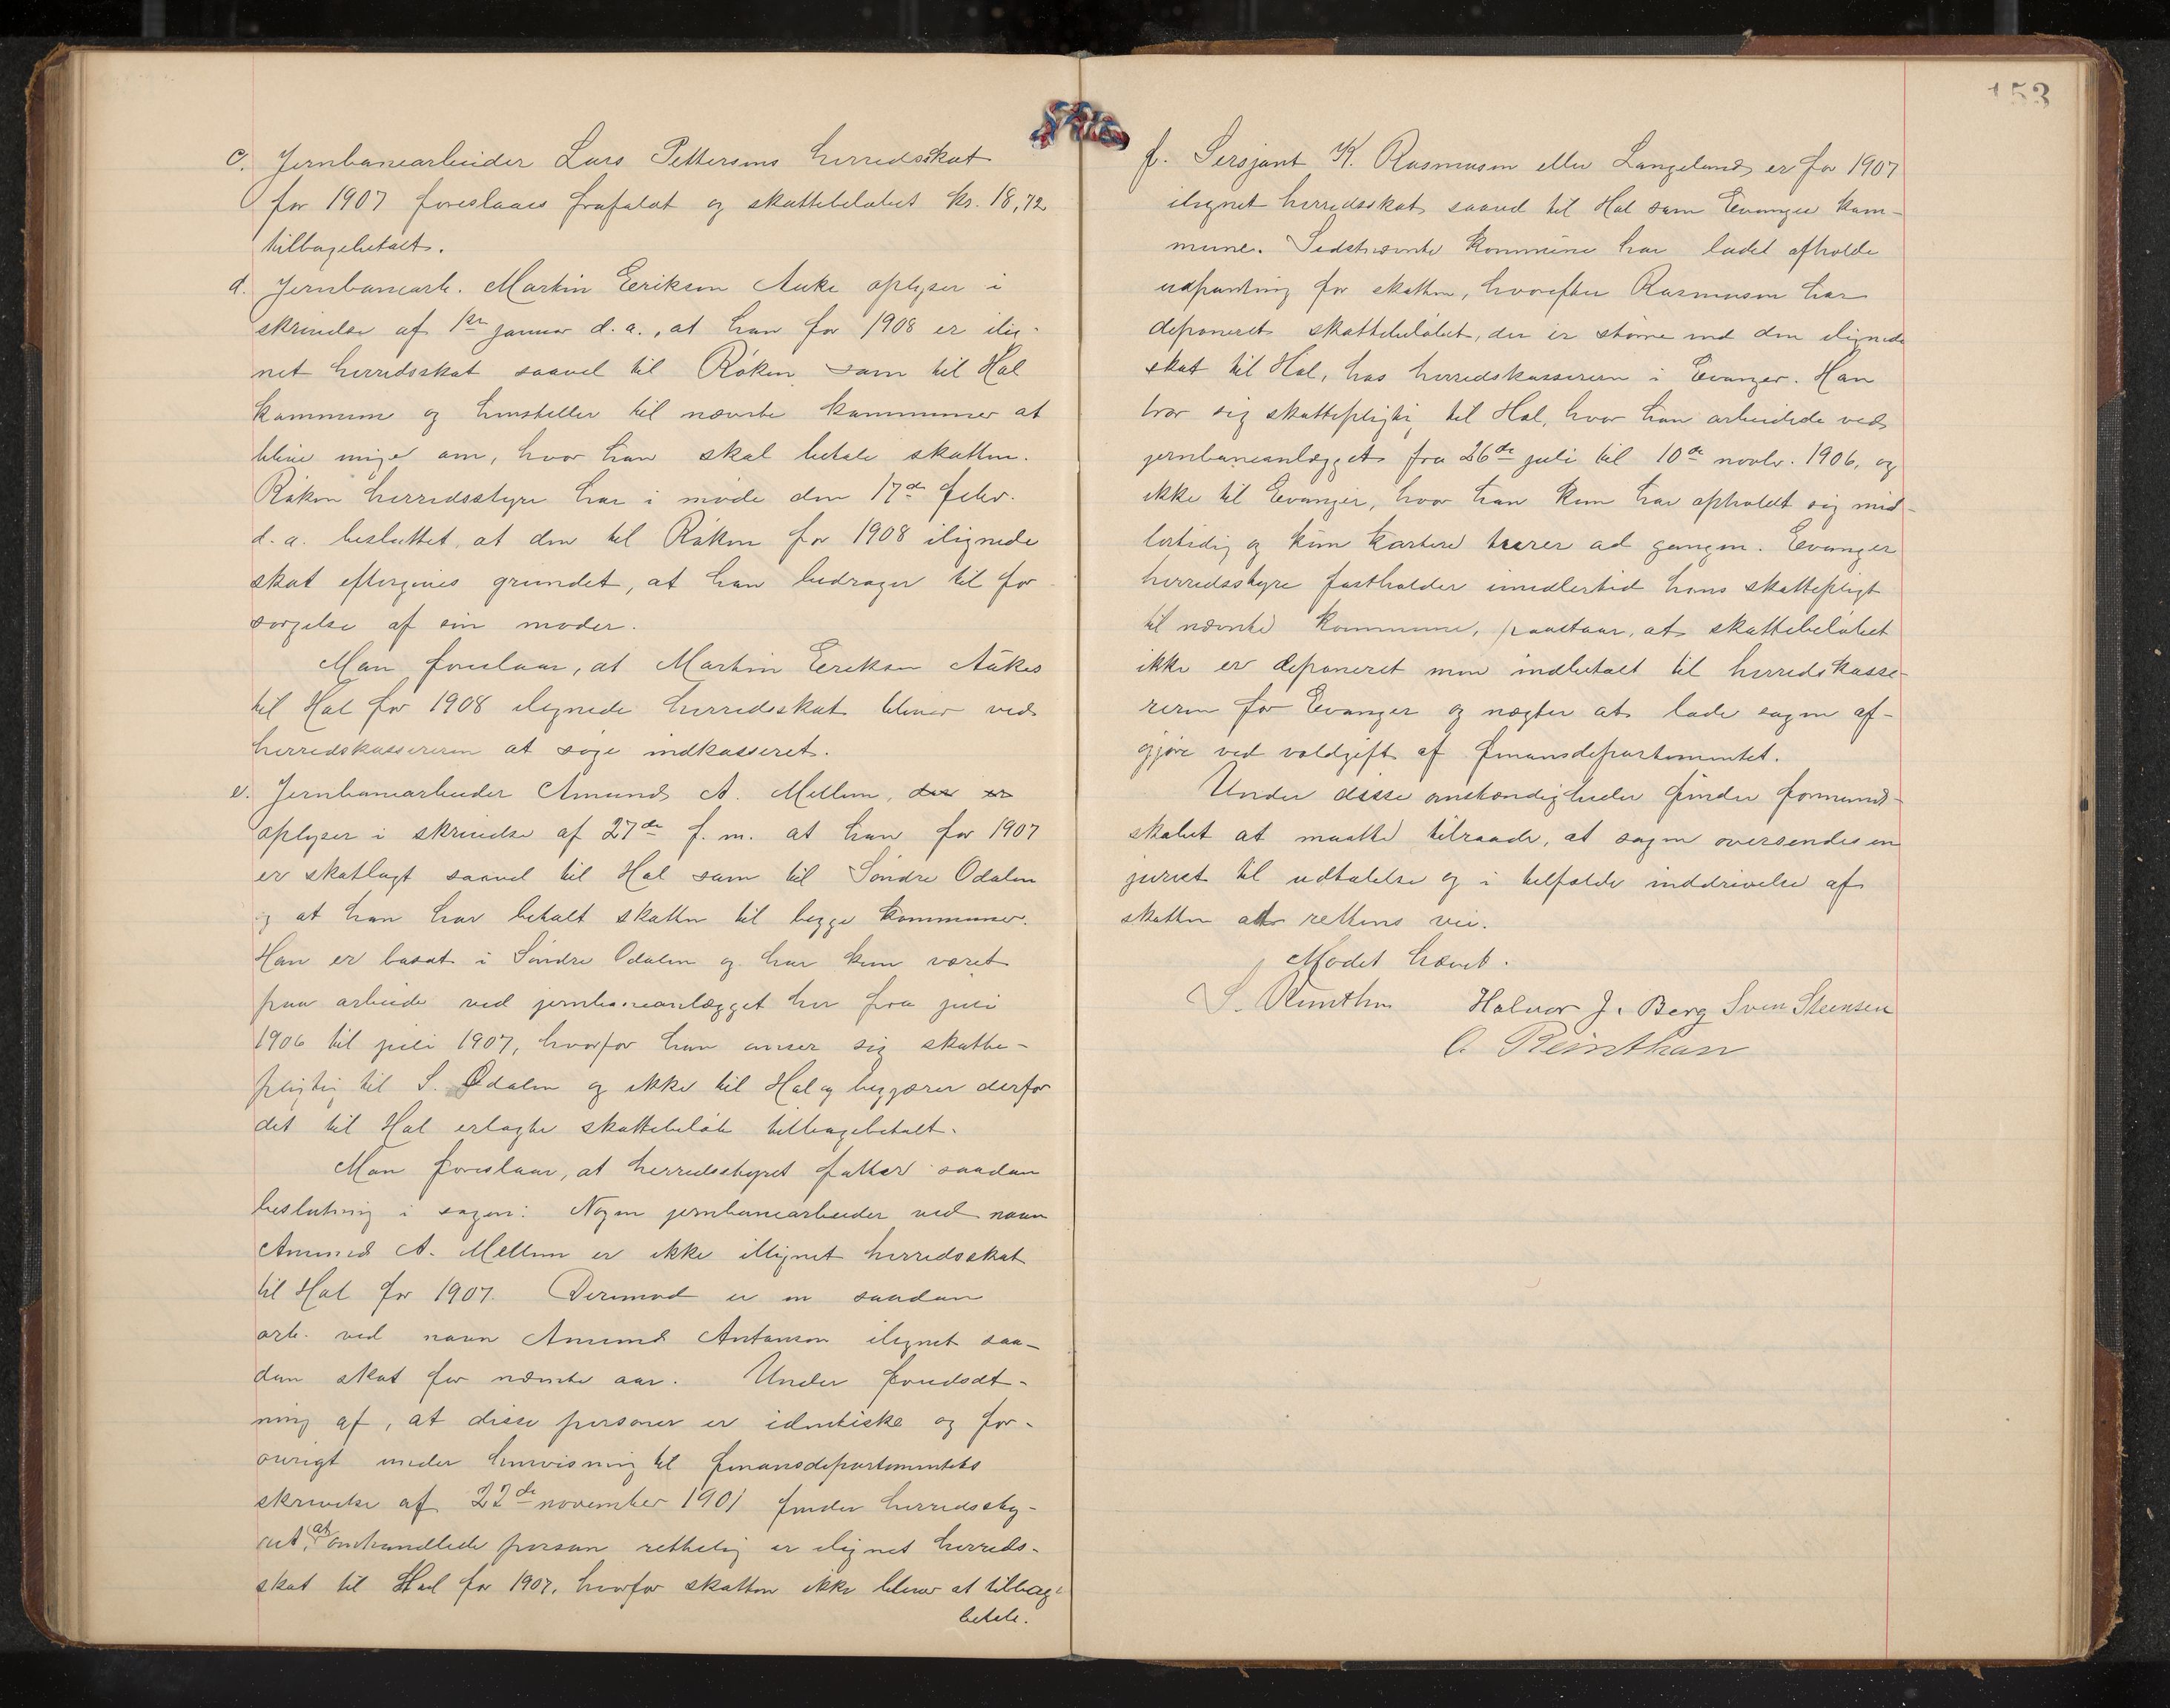 c. Jernbanearbeider Lars Pettersens herredsskat
for 1907 foreslaaes frafaldt og skattebeløbet kr. 18,72
tilbagebetalt.
d. Jernbanearb. Martin Erikson Auke oplyser i
skrivelse af 1ste januar d. a., at han for 1908 er ilig-
net herredsskat saavel til Røken som til Hol
kommune og henstiller til nævnte kommuner at
blive enige om, hvor han skal betale skatten.
Røken herredsstyre har i møde den 17de febr.
d. a. besluttet, at den til Røken for 1908 ilignede
skat eftergives grundet, at han bidrager til for
sørgelse af sin moder.
Man foreslaar, at Martin Erikson Aukes
til Hol for 1908 ilignede herredsskat bliver ved
herredskassereren at søge indkasseret.
e. Jernbanearbeider Amund A. Mellem, der er
oplyser i skrivelse af 27de f. m. at han for 1907
er skatlagt saavel til Hol som til Søndre Odalen
og at han har betalt skatten til begge kommuner.
Han er bosat i Søndre Odalen og har kun været
paa arbeide ved jernbaneanlægget her fra juli
1906 til juli 1907, hvorfor han anser sig skatte-
pligtig til S. Odalen og ikke til Hol og begjærer derfor
det til Hol erlagte skattebeløb tilbagebetalt.
Man foreslaar, at herredsstyret fatter saadan
beslutning i sagen: Nogen jernbanearbeider ved navn
Amund A. Mellem er ikke illignet herredsskat
til Hol for 1907. Derimod er en saadan
arb. ved navn Amund Antonsen ilignet saa-
dan skat for nævnte aar. Under forudsæt-
ning af, at disse personer er identiske og for-
øvrigt under henvisning til finansdepartementets
skrivelse af 22de november 1901 finder herredssty-
ret, at omhandlede person rettelig er ilignet herreds-
skat til Hol for 1907, hvorfor skatten ikke bliver at tilbage
betale.
153
f. Sersjant K. Rasmusen eller Langeland er for 1907
ilignet herredsskat saavel til Hol som Evanger kom-
mune. Sidstnævnte kommune har ladet afholde
udpantning for skatten, hvorefter Rasmusen har
deponeret skattebeløbet, der er større end den ilignede
skat til Hol, hos herredskassereren i Evanger. Han
tror sig skattepligtig til Hol, hvor han arbeidede ved
jernbaneanlægget fra 26de juli til 10de novbr. 1906, og
ikke til Evanger, hvor han kun har opholdt sig mid-
lertidig og kun kortere turer ad gangen. Evanger
herredsstyre fastholder imidlertid hans skattepligt
til nævnte kommune, paastaar, at skattebeløbet
ikke er deponeret men indbetalt til herredskasse-
reren for Evanger og nægter at lade sagen af-
gjøre ved voldgift af finansdepartementet.
Under disse omstændigheder finder formand-
skabet at maatte tilraade, at sagen oversendes en
jurist til udtalelse og i tilfælde inddrivelse af
skatten ad rettens vei.
Mødet hævet.
S. Reinthon Halvor J. Berg Sven Steensen
O. Reinthan